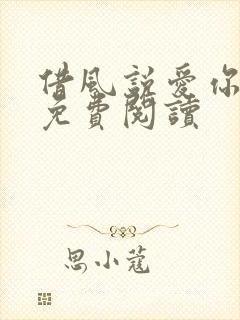 借風說愛你
免費閱讀
思小蔻